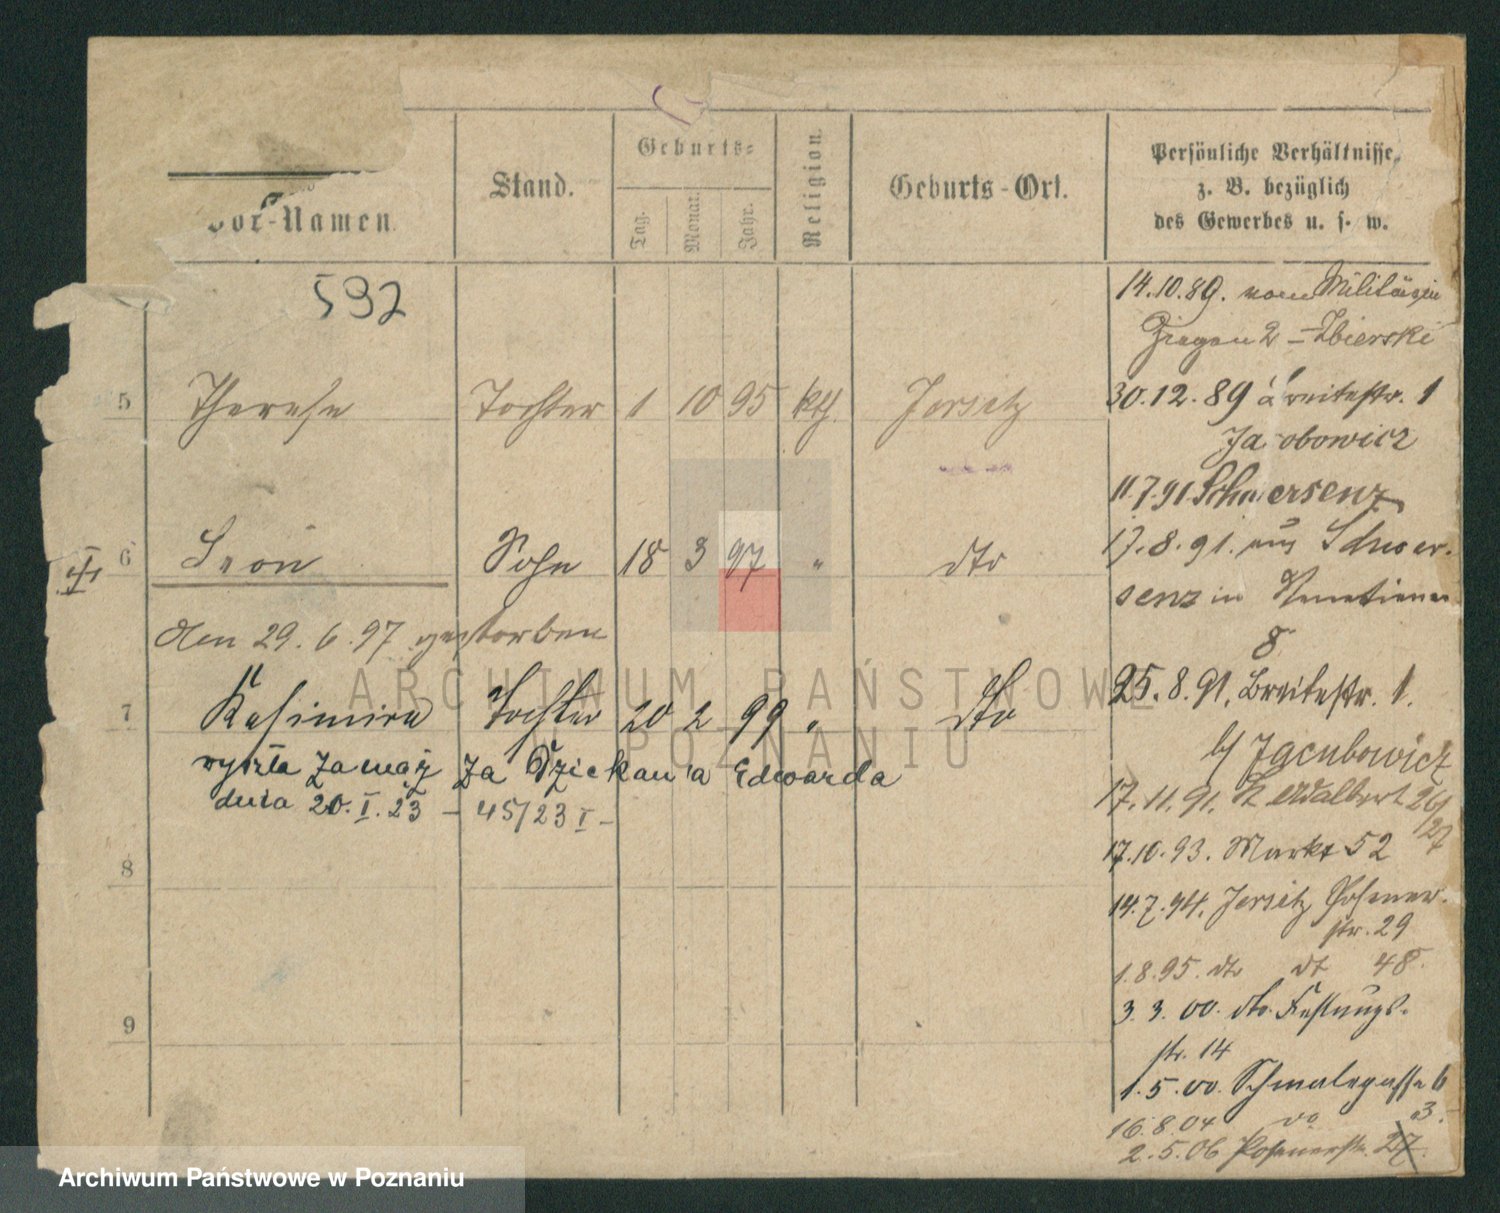 Vor-Namen.
Stand.
Geburts-
Tag.
Monat.
Jahr.
Religion.
Geburts-Ort.
Persönliche Verhältnisse,
z. B. bezüglich
des Gewerbes u. s. w.
592
14.10.89. vom
2 - Zbierski
5 Therese Tochter 1 10 95 kth. Jersitz
30.12.89 Breitestr. 1
Jacobowicz
11.7.91 Schwersenz
6 Leon Sohn 18 3 97 " dto
17.8.91. aus Schwer-
senz in Venetianer
8
den 29.6.97 gestorben
7 Kasimira Tochter 20 2 99 " dto
25.8.91. Breitestr. 1.
b/ Jacubowicz
wyszła zamąż za Edwarda
dnia 20.I.23 - 45/23 I -
17.11.91. St Adalbert 26/27
8
17.10.93. Markt 52
14.7.94. Jersitz Posener-
str. 29
1.8.95. dto dt 48.
9
3.3.00. dto. Festungs-
str. 14
1.5.00. Schmalegasse 6
16.8.04 do 3.
2.5.06 Posenerstr. 27
ARCHIWUM PAŃSTWOWE
W POZNANIU
Archiwum Państwowe w Poznaniu